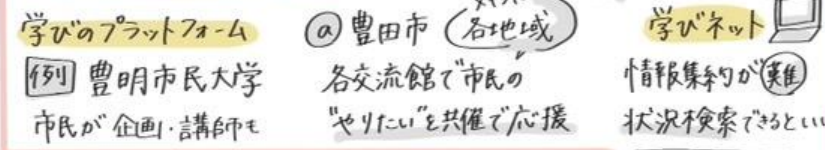 学びのプラットフォーム
例 豊明市民大学
市民が企画・講師も
@ 豊田市 各地域
各交流館で市民の
"やりたい"を共催で応援
学びネット
情報集約が難
状況検索できるといい